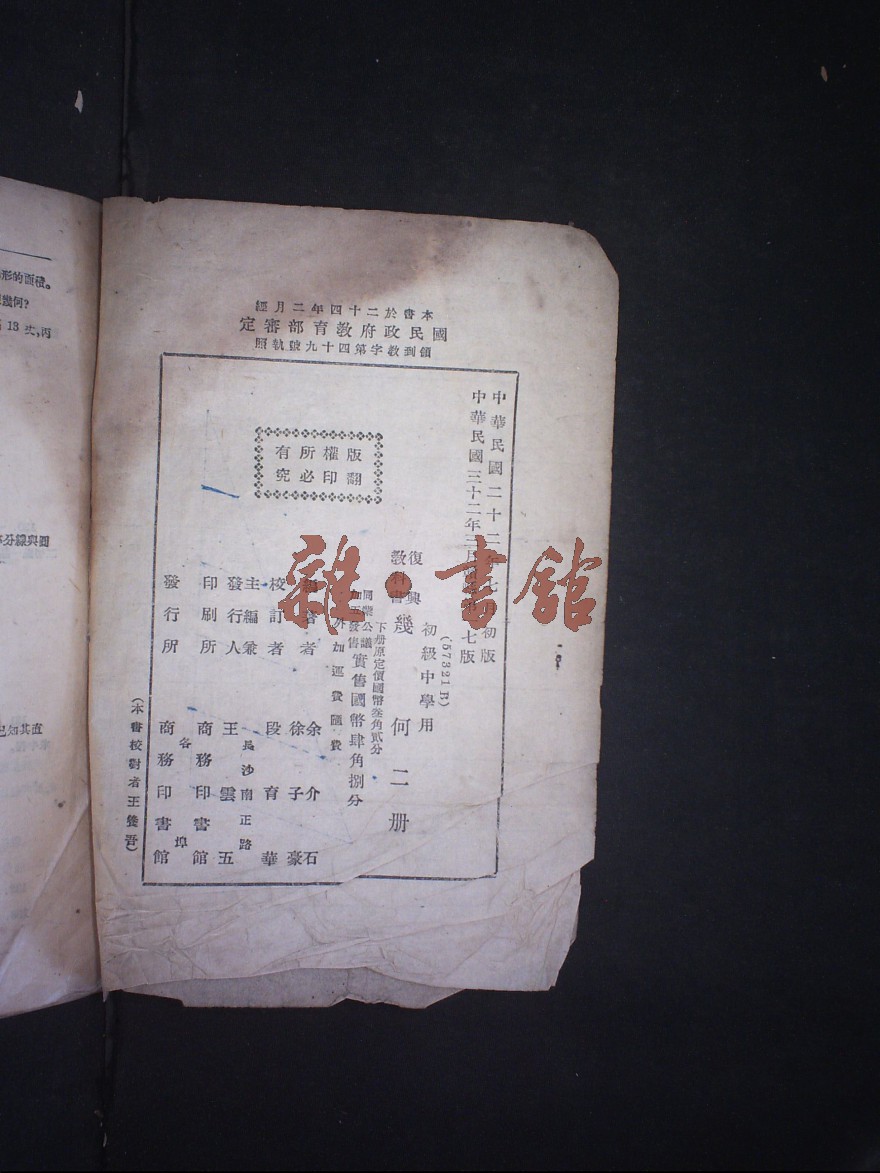 形的面積。
幾何?
13
分線與圓
已知其直
本書於二十四年二月經
國民政府教育部審定
領到教字第四十九號執照
中華民國二十二
初版
中華民國三十二年三月
七版
版權所有
翻印必究
(57321B)
復興教科書
初級中學用
幾何二册
下册原定價國幣叁角貳分
實售國幣肆角捌分
外加運費匯費
者 余介石
徐子豪
校訂者 段育華
主編兼發行人 王雲五
長沙南正路
印刷所 商務印書館
各埠
發行所 商務印書館
(本書校對者王養吾)
雜·書館